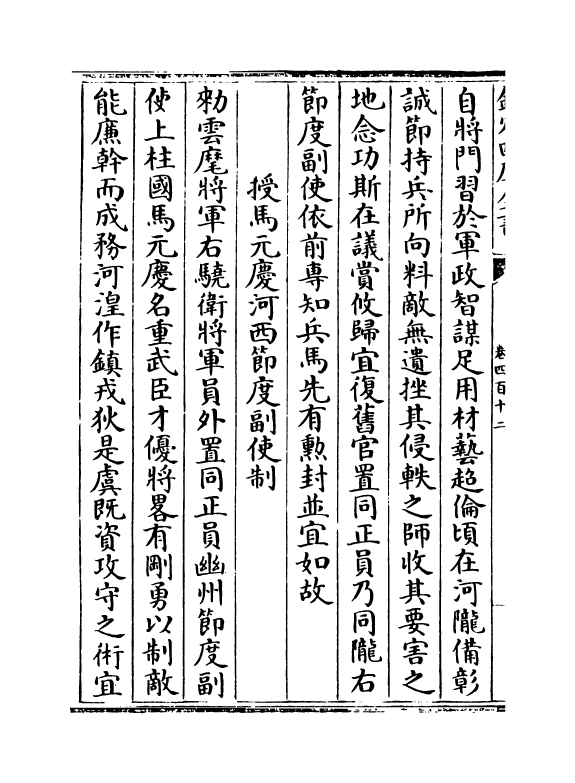 欽定四庫全書
卷四百十二
自將門習於軍政智謀足用材藝超倫頃在河隴備彰
誠節持兵所向料敵無遺挫其侵軼之師收其要害之
地念功斯在議賞攸歸宜復舊官置同正員乃同隴右
節度副使依前專知兵馬先有勲封並宜如故
授馬元慶河西節度副使制
勑雲麾將軍右驍衛將軍員外置同正員幽州節度副
使上柱國馬元慶名重武臣才優將畧有剛勇以制敵
能廉幹而成務河湟作鎮戎狄是虞既資攻守之術宜